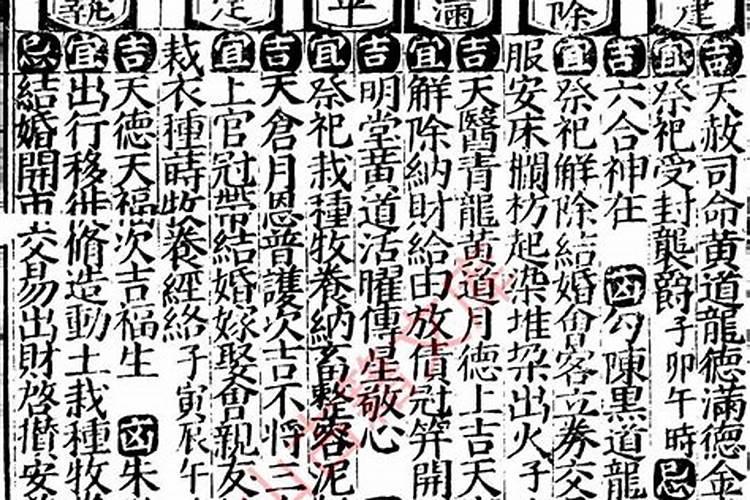 建
吉天赦司命黄道龍德滿德金
宜祭祀受封襲爵子卯午時忌
除
吉六合神在凶勾陳黒道龍
宜祭祀解除結婚會客立券交
服安床欄枋起染堆垜出火子
滿
吉天醫青龍黄道月德上吉天
宜解除納財給由放債冠笄開
平
吉明堂黄道活曜傳星敬心
宜祭祀栽種牧養納畜整容泥
定
吉天倉月恩普護次吉不將三
宜上官冠帶結婚嫁娶會親友
裁衣種蒔牧養經絡子寅辰午
執
吉天德天福次吉福生凶朱
宜出行移徙脩造動土栽種牧
忌結婚開市交易出財啓攢安